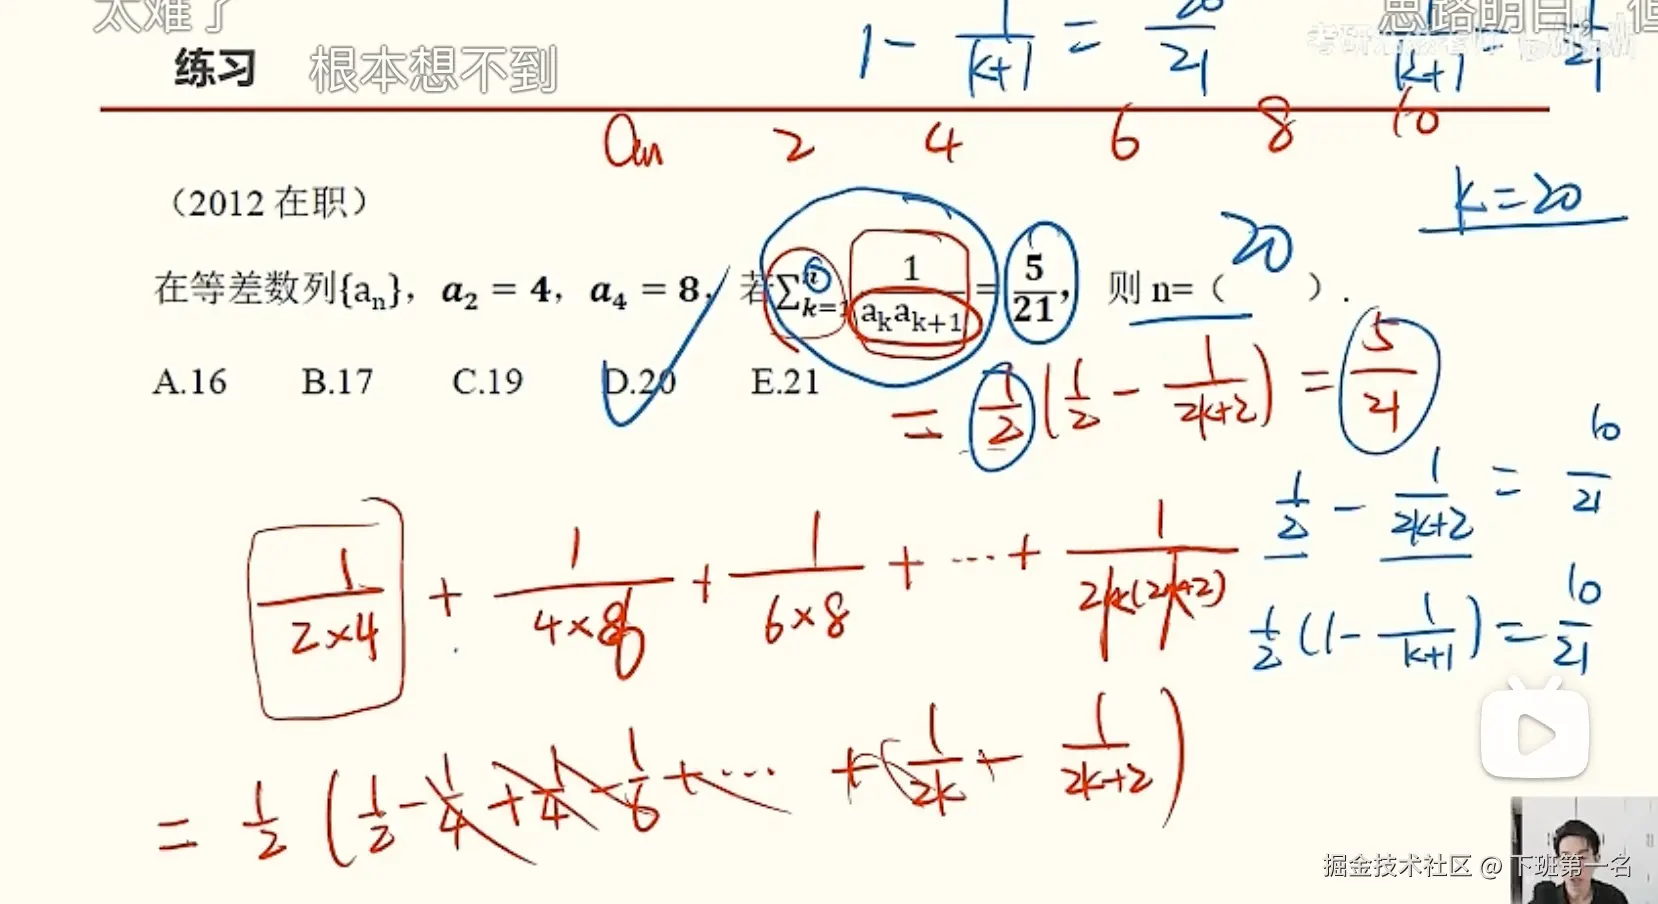 太难了
思路明白，但
练习 根本想不到
1 - 1/(k+1) = 20/21
1/(k+1) = 1/21
an 2 4 6 8 10
（2012 在职）
k=20
20
在等差数列{aₙ}，a₂ = 4，a₄ = 8，若∑ₖ₌₁ⁿ 1/(aₖaₖ₊₁) = 5/21，则 n=（ ）.
A.16 B.17 C.19 D.20 E.21
= 1/2 (1/2 - 1/(2k+2)) = 5/21
1/2 - 1/(2k+2) = 10/21
1/(2×4) + 1/(4×6) + 1/(6×8) + ... + 1/(2k(2k+2))
1/2 (1 - 1/(k+1)) = 10/21
= 1/2 (1/2 - 1/4 + 1/4 - 1/6 + ... + 1/2k - 1/(2k+2))
掘金技术社区 @ 下班第一名